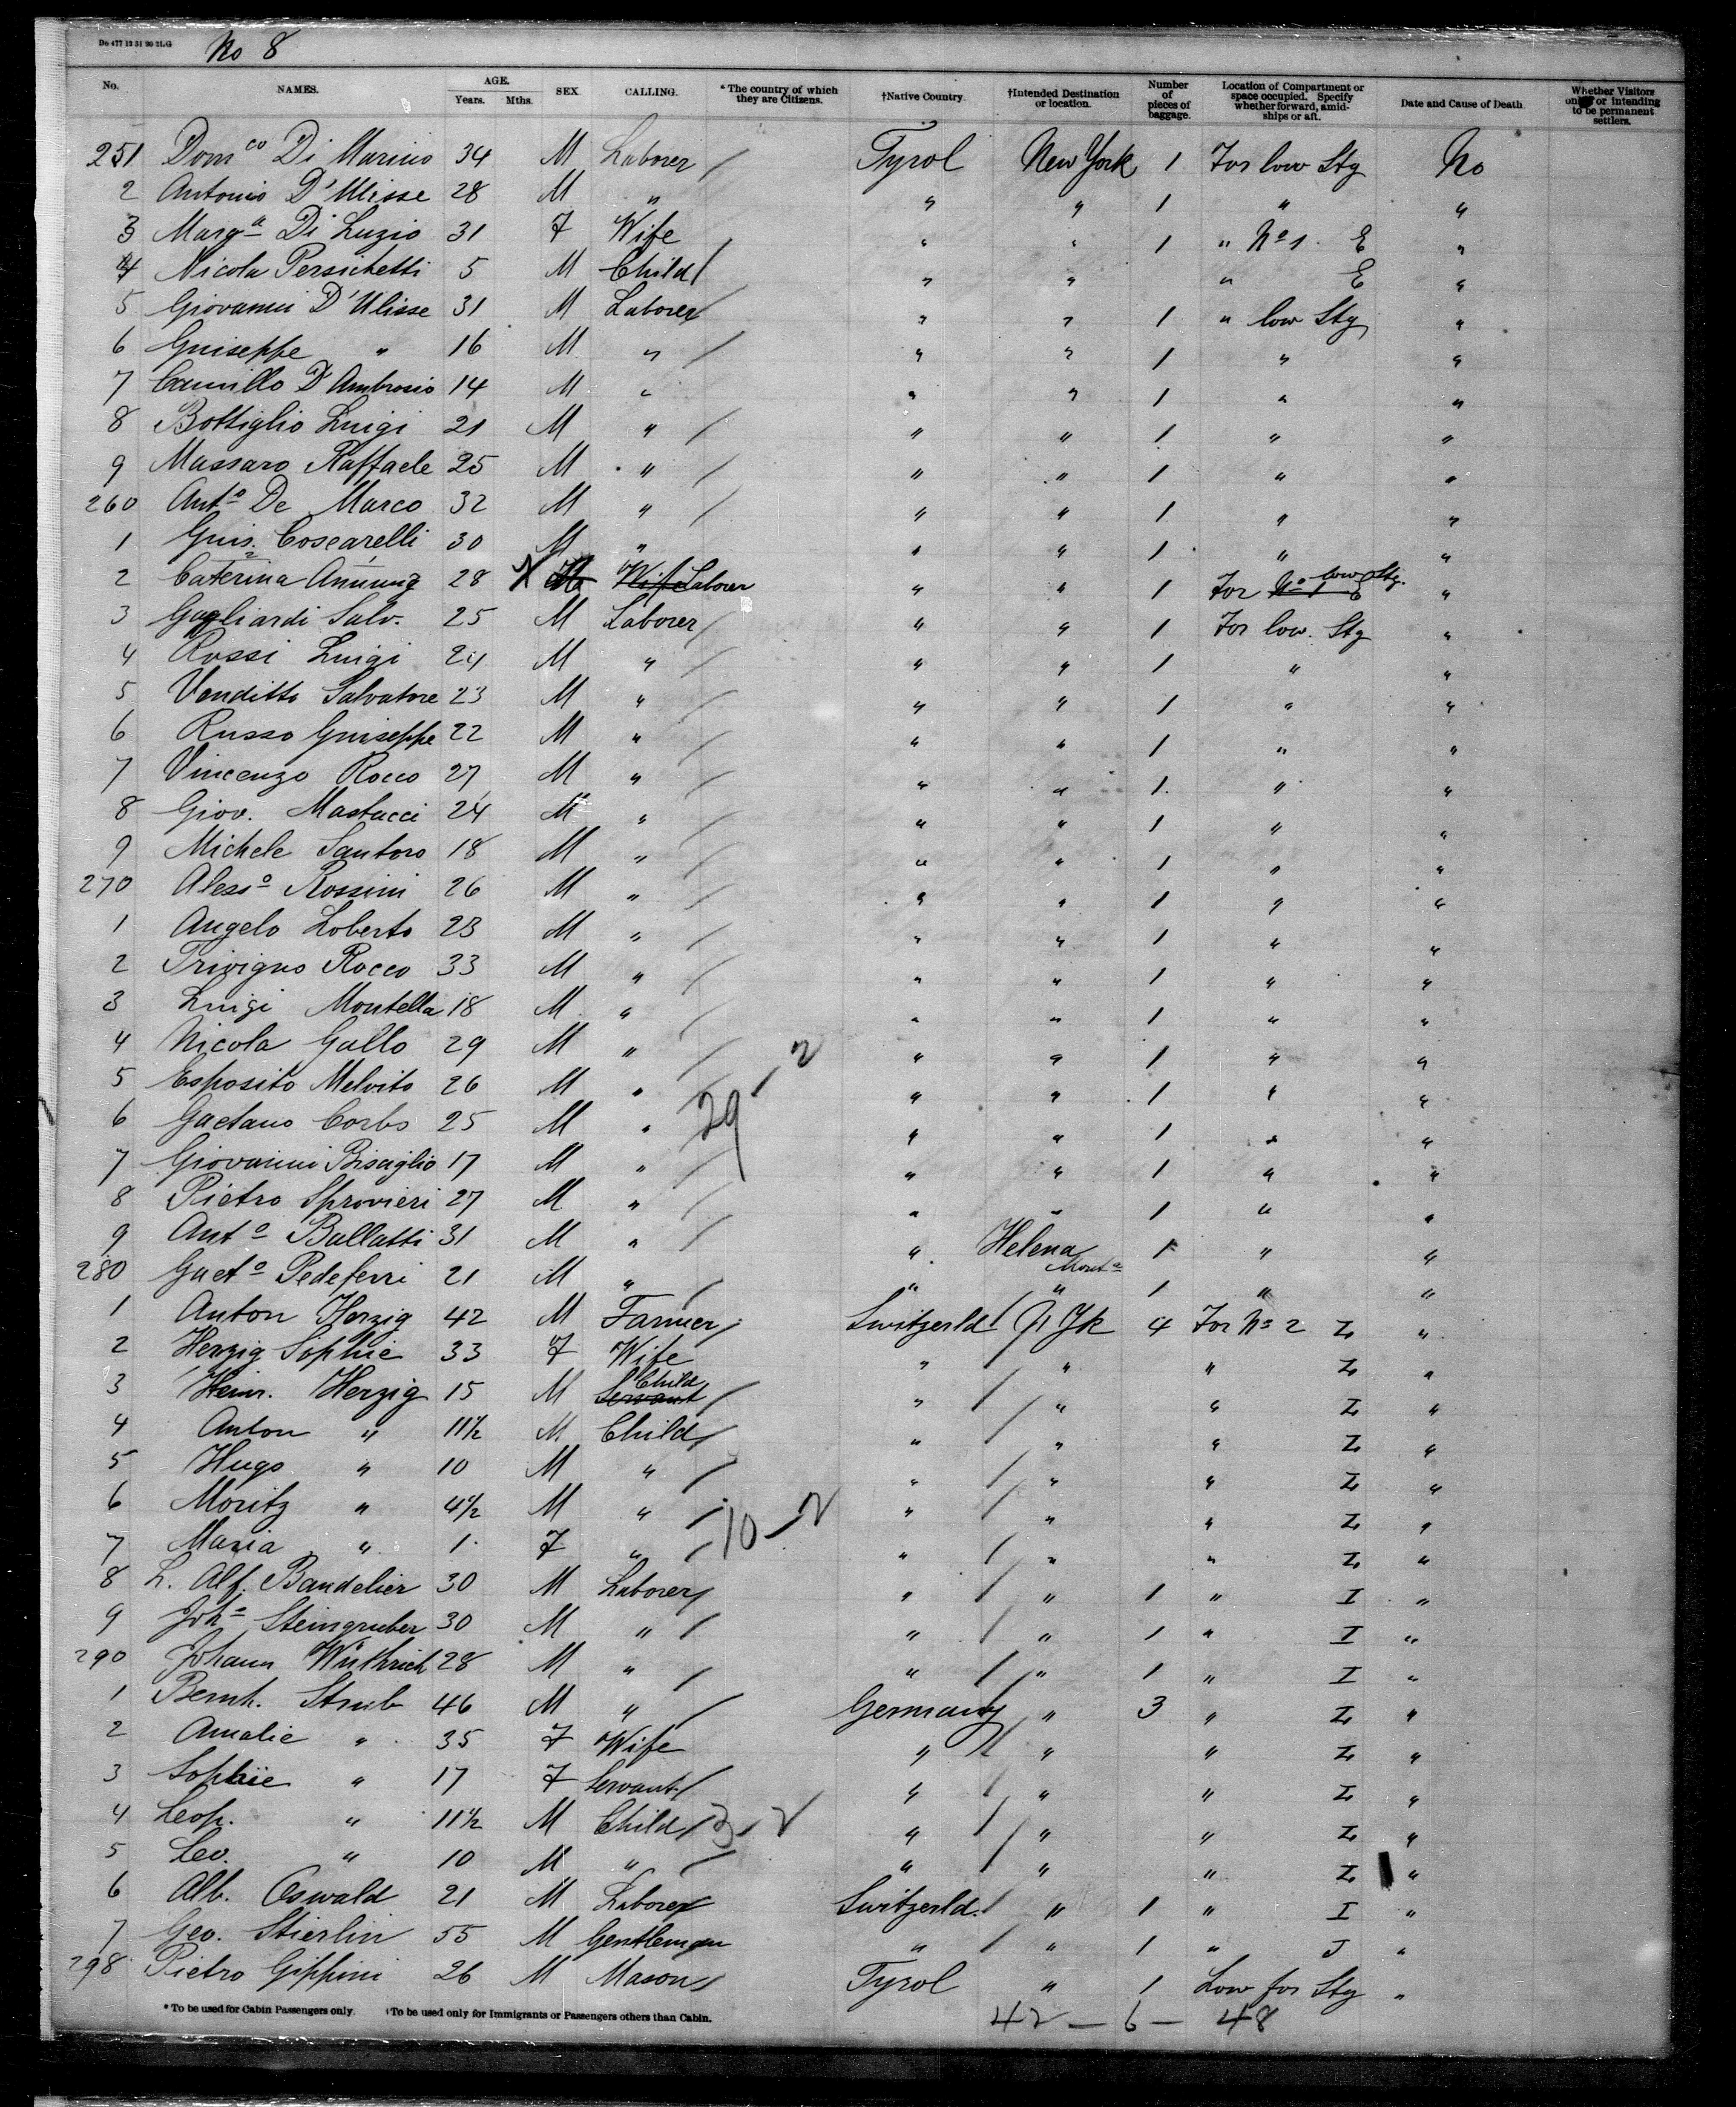 Do 477 12 31 90 2LG No 8
No. NAMES. AGE. Years. Mths. SEX CALLING. * The country of which they are Citizens. †Native Country. †Intended Destination or location. Number of pieces of baggage. Location of Compartment or space occupied. Specify whether forward, amidships or aft. Date and Cause of Death Whether Visitors only or intending to be permanent settlers.
251 Domco Di Marino 34 M Laborer / Tyrol New York 1 For low Stg No
2 Antonio D'Ulisse 28 M " " " 1 " "
3 Marga Di Luzio 31 F Wife " " 1 " No 1. E "
4 Nicola Persichetti 5 M Child / " " " E "
5 Giovanni D'Ulisse 31 M Laborer " " 1 " low Stg "
6 Guiseppe " 16 M " / " " 1 " "
7 Camillo D'Ambrosio 14 M " " " 1 " "
8 Bottiglio Luigi 21 M " / " " 1 " "
9 Massaro Raffaele 25 M " / " " 1 " "
260 Anto De Marco 32 M " / " " 1 " "
1 Guis. Coscarelli 30 M " " " 1 " "
2 Caterina 28 X Wife Laborer " " 1 For No 1 E low Stg. "
3 Gagliardi Salv. 25 M Laborer / " " 1 For low. Stg "
4 Rossi Luigi 24 M " / " " 1 " "
5 Venditto Salvatore 23 M " / " " 1 " "
6 Russo Guiseppe 22 M " / " " 1 " "
7 Vincenzo Rocco 27 M " / " " 1. " "
8 Giov. Mastacci 24 M " / " " 1 " "
9 Michele Santoro 18 M " / " " 1 " "
270 Alesso Rossini 26 M " / " " 1 " "
1 Angelo Loberto 23 M " / " " 1 " "
2 Trivigno Rocco 33 M " / " " 1 " "
3 Luigi Montella 18 M " / " " 1 " "
4 Nicola Gallo 29 M " / " " 1 " "
5 Esposito Melvito 26 M " 29 - 2 " " 1 " "
6 Gaetano Corbo 25 M " " " 1 " "
7 Giovanni Bisaglio 17 M " / " " 1 " "
8 Pietro Sprovieri 27 M " / " " 1 " "
9 Anto Ballatti 31 M " / " Helena Monta 1 " "
280 Gaeto Pedeferri 21 M " / " " 1 " "
1 Anton Herzig 42 M Farmer / Switzerld / N Yk 4 For No 2 Z "
2 Herzig Sophie 33 F Wife " / " " Z "
3 Heinr. Herzig 15 M Servant Child / " / " " Z "
4 Anton " 11½ M Child / " / " " Z "
5 Hugo " 10 M " / " / " " Z "
6 Moritz " 4½ M " / 10 - 2 " / " " Z "
7 Maria " 1 F " / " / " " Z "
8 L. Alf. Bandelier 30 M Laborer / " / " 1 " I "
9 Joh. Steingruber 30 M " / " / " 1 " I "
290 Johann Wüthrich 28 M " / " / " 1 " I "
1 Bernh. Strub 46 M " / Germany " 3 " Z "
2 Amalie " 35 F Wife " / " " Z "
3 Sophie " 17 F Servant / " / " " Z "
4 Leop. " 11½ M Child / 3 - 2 " / " " Z "
5 Leo. " 10 M " / " / " " Z "
6 Alb. Oswald 21 M Laborer Switzerld. / " 1 " I "
7 Geo. Stierlin 55 M Gentleman " / " 1 " J "
298 Pietro Gippini 26 M Mason / Tyrol " 1 Low for Stg "
* To be used for Cabin Passengers only. †To be used only for Immigrants or Passengers others than Cabin.
42 - 6 - 48